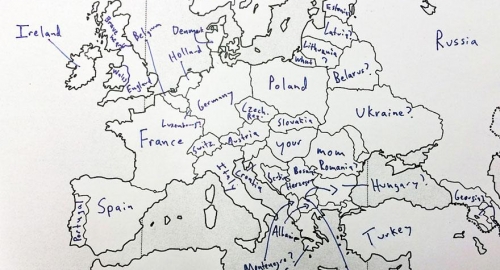 Ireland
Great
Britain
Wales
England
Belgium
Denmark
Holland
Estonia?
Latvia?
Lithuania
What?
Russia
Belarus?
Poland
Germany
Luxembourg?
Czech
Rep.
Slovakia
Ukraine?
France
Switz.
Austria
your
mom
Romania?
Italy
Croatia
Bosnia
Herzegov
Hungary?
Georgia?
Portugal
Spain
Albania
Turkey
Montenegro?